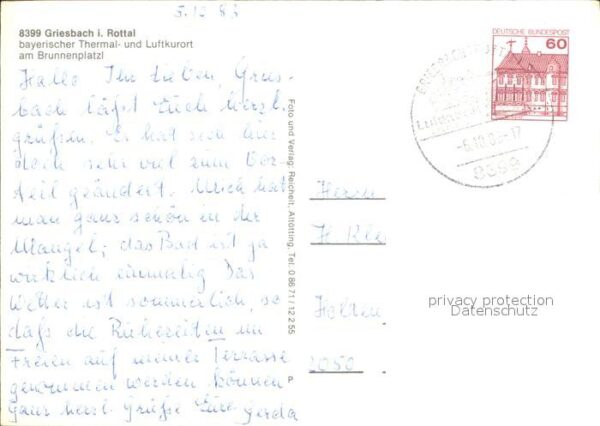 5.10.83
8399 Griesbach i. Rottal
bayerischer Thermal- und Luftkurort
am Brunnenplatzl
Hallo Ihr Lieben, Gries-
bach läßt Euch herzl.
grüßen. Es hat sich hier
doch sehr viel zum Vor-
teil geändert. Mich hat
man ganz schön in der
Mangel; das Bad ist ja
wirklich einmalig Das
Wetter ist sommerlich, so
daß die Ruhezeiten im
Freien auf meiner Terrasse
genommen werden können
Ganz herzl. Grüße Eure Gerda
Foto und Verlag: Reichelt, Altötting, Tel. 0 86 71 / 12 2 55
P
DEUTSCHE BUNDESPOST
60
8399
Herrn
H. Kle
Holden
2050
privacy protection
Datenschutz